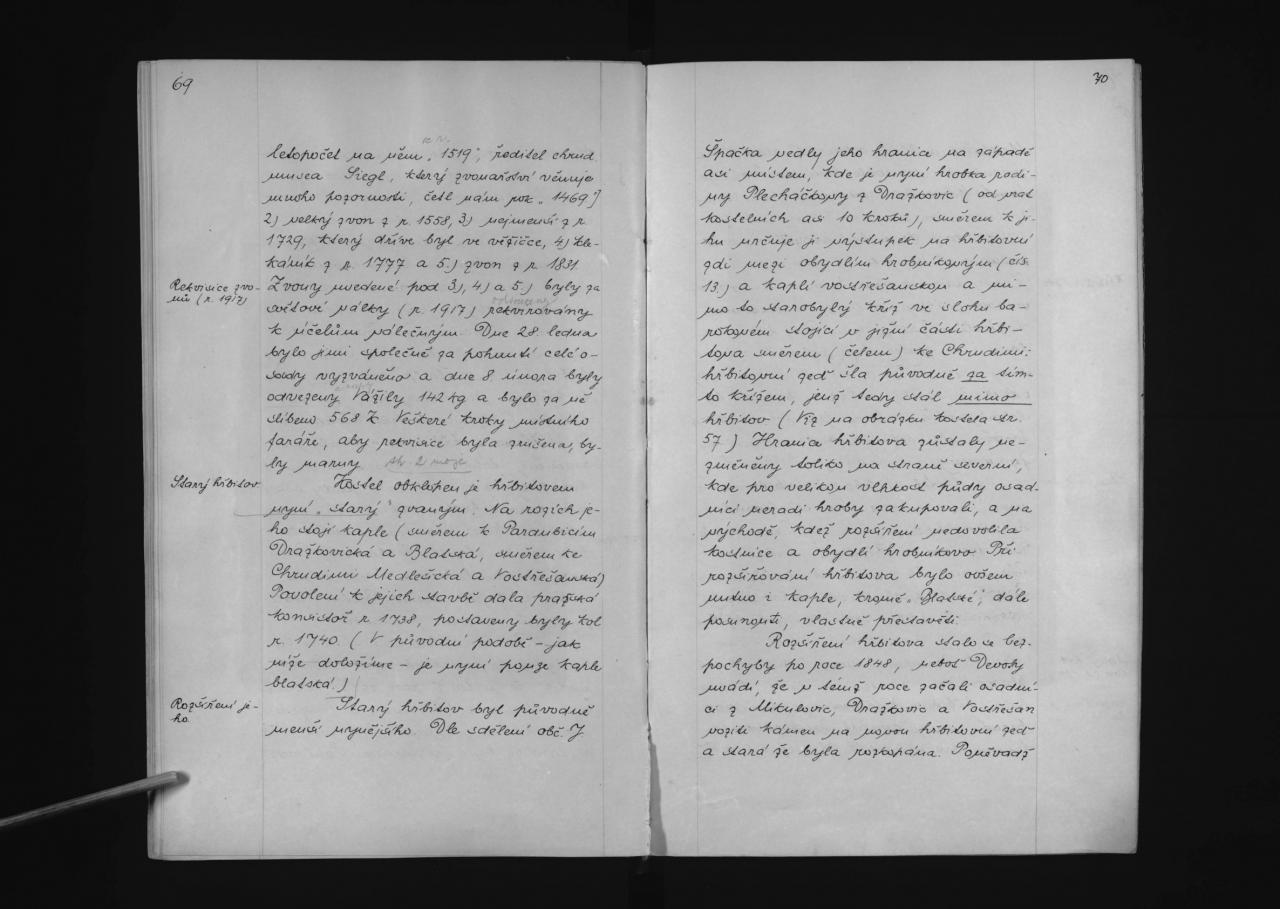 69
letopočet na něm „1519“, ředitel chrud.
musea Siegl, který zvonařství věnuje
mnoho pozornosti, četl nám rok „1469“]
2) velký zvon z r. 1558, 3) nejmenší z r.
1729, který dříve byl ve věžičce, 4) kle-
káník z r. 1777 a 5.) zvon z r. 1831.
Rekvisice zvo-
nů (r. 1917)
Zvony uvedené pod 3), 4) a 5.) byly za
světové války (r. 1917) rekvirovány
k účelům válečným. Dne 28. ledna
bylo jimi společně za pohnutí celé o-
sady vyzváněno a dne 8 února byly
odvezeny. Vážily 142 kg a bylo za ně
slíbeno 568 K. Veškeré kroky místního
faráře, aby rekvisice byla zrušena, by-
ly marny.
Starý hřbitov
Kostel obklopen je hřbitovem
nyní „starý“ zvaným. Na rozích je-
ho stojí kaple (směrem k Pardubicím
Dražkovická a Blatská, směrem ke
Chrudimi Medlešická a Vostřešanská)
Povolení k jejich stavbě dala pražská
konsistoř r. 1738, postaveny byly kol
r. 1740. (V původní podobě – jak
níže doložíme – je nyní pouze kaple
blatská.)
Rozšíření je-
ho.
Starý hřbitov byl původně
menší nynějšího. Dle sdělení obč. J.
70
Špačka vedly jeho hranice na západě
asi místem, kde je nyní hrobka rodi-
ny Plecháčkovy z Dražkovic (od vrat
kostelních asi 10 kroků), směrem k ji-
hu určuje ji výstupek na hřbitovní
zdi mezi obydlím hrobníkovým (čís.
13.) a kaplí vostřešanskou a mi-
mo to starobylý kříž ve slohu ba-
rokovém stojící v jižní části hřbi-
tova směrem (čelem) ke Chrudimi:
hřbitovní zeď šla původně za tím-
to křížem, jenž tedy stál mimo
hřbitov (Viz na obrázku kostela str.
57) Hranice hřbitova zůstaly ne-
změněny toliko na straně severní,
kde pro velikou vlhkost půdy osad-
níci neradi hroby zakupovali, a na
východě, kdež rozšíření nedovolila
kostnice a obydlí hrobníkovo. Při
rozšiřování hřbitova bylo ovšem
nutno i kaple, kromě „Blatské“, dále
posunouti, vlastně přestavěti.
Rozšíření hřbitova stalo se bez-
pochyby po roce 1848, neboť Devoty
uvádí, že v témž roce začali osadní-
ci z Mikulovic, Dražkovic a Vostřešan
voziti kámen na novou hřbitovní zeď
a stará že byla rozkopána. Poněvadž